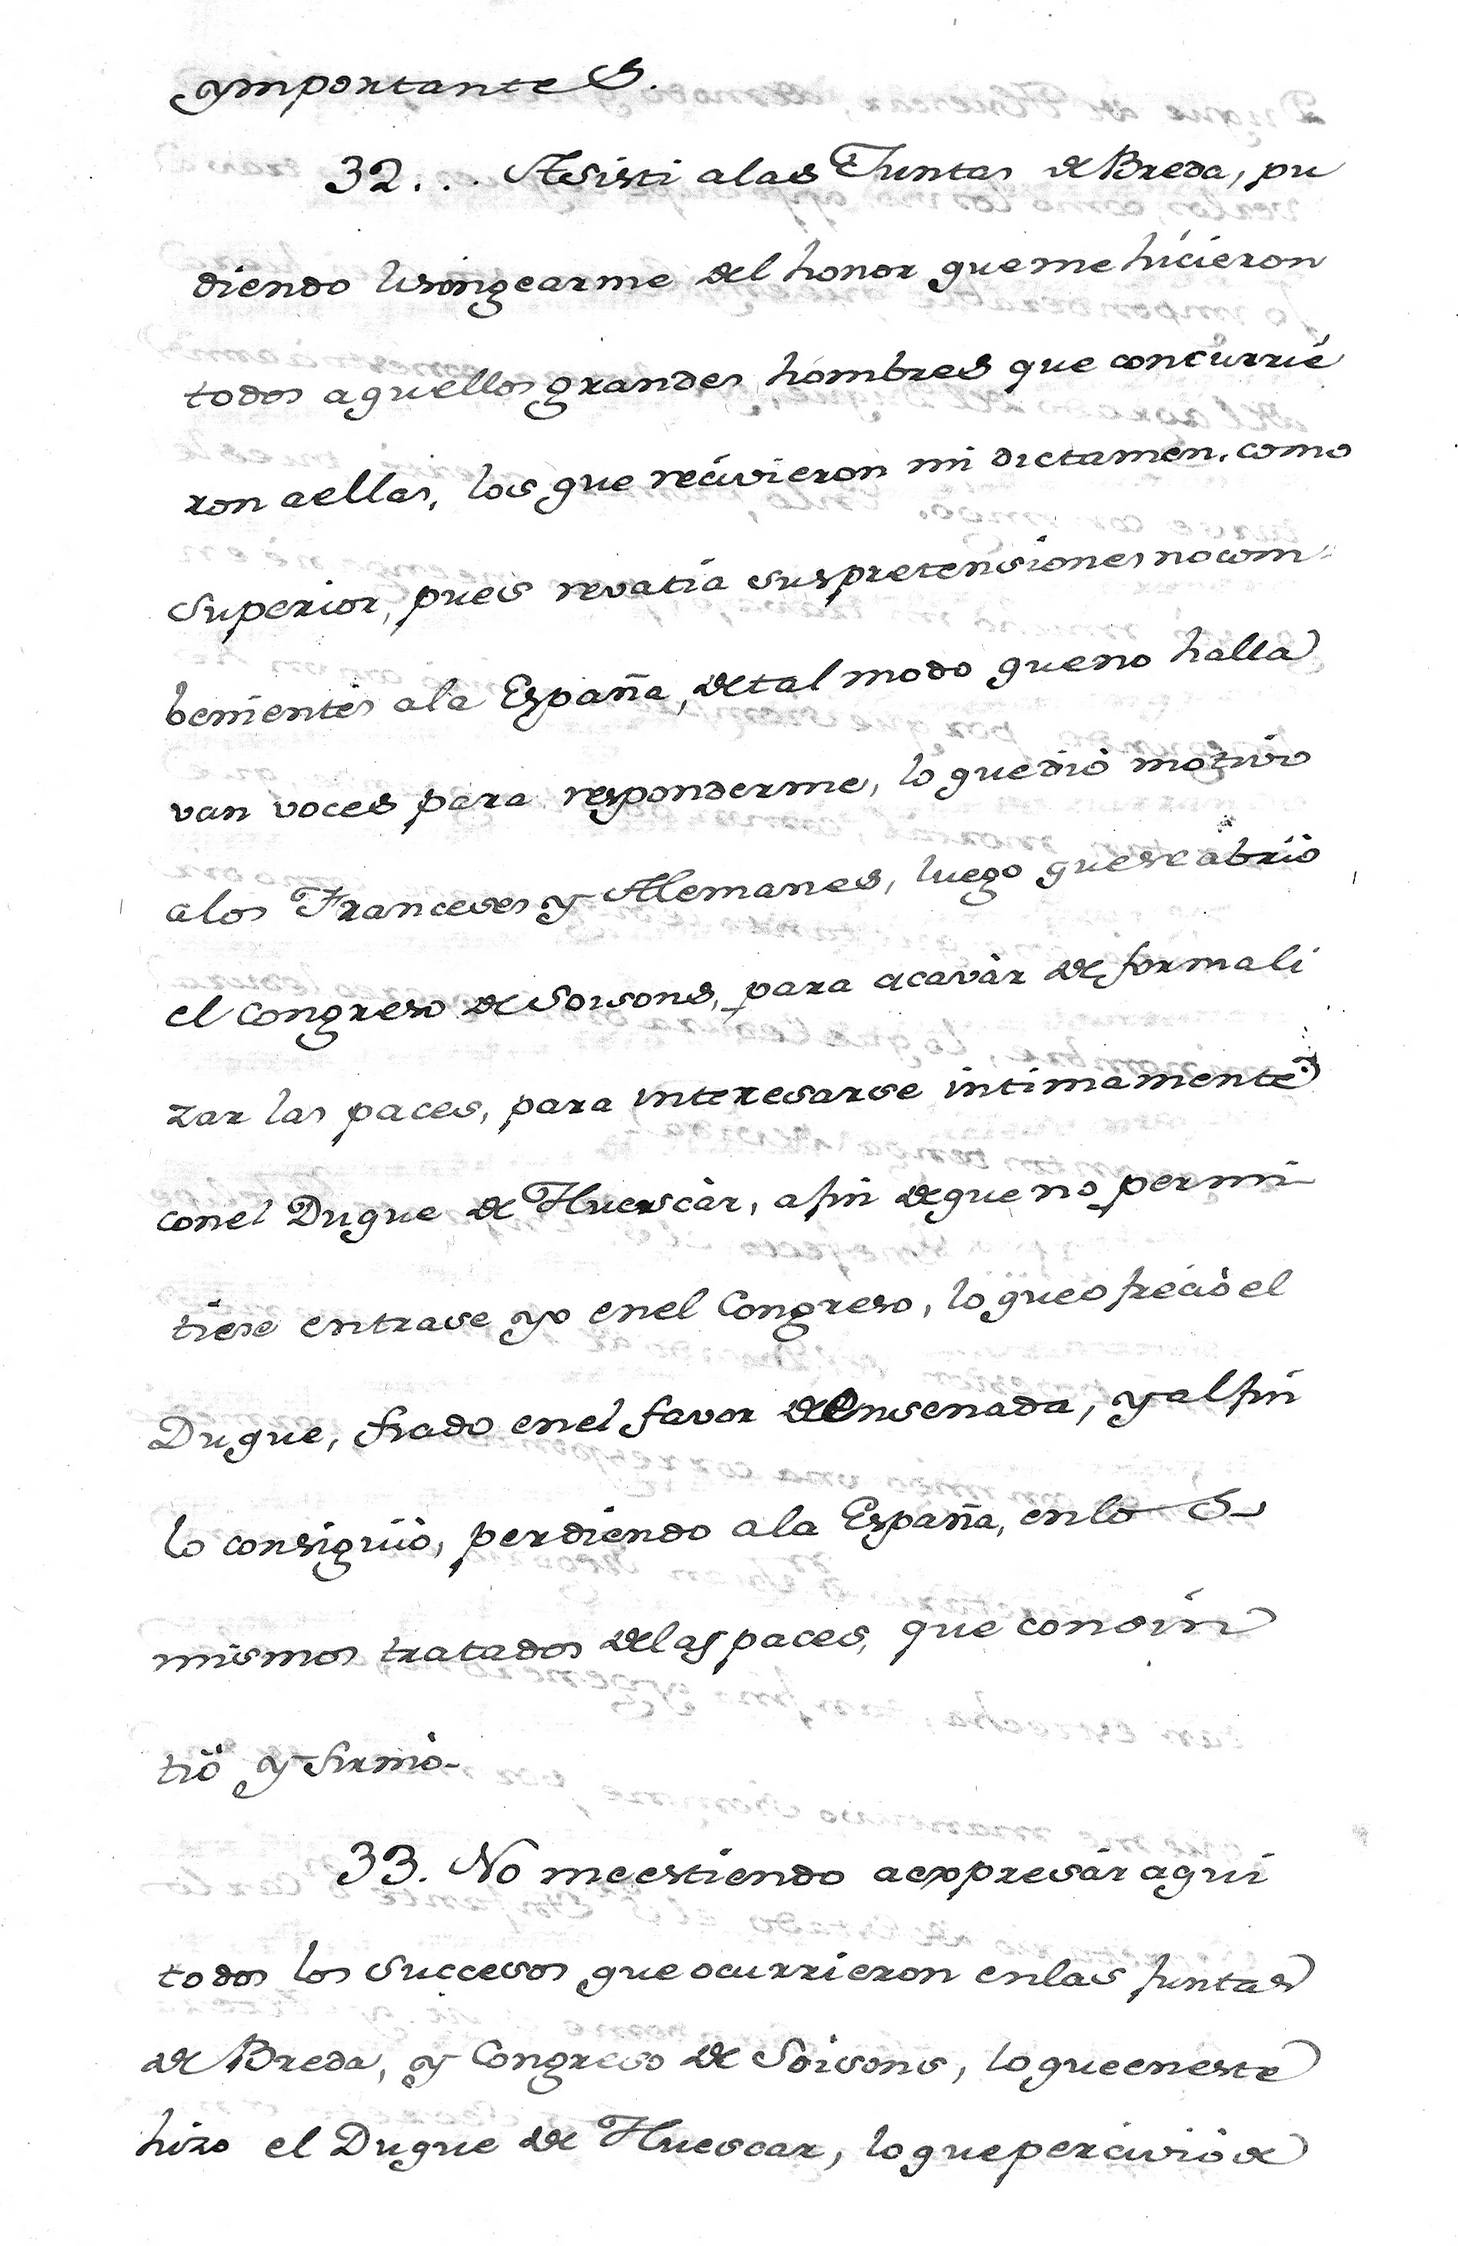 ymportantes.
32... Asisti alas Juntas de Breda, pu
diendo lisongearme del honor que me hicieron
todos aquellos grandes hombres que concurrie
ron aellas, los que recivieron mi dictamen, como
superior, pues revatia sus pretensiones no com
benientes ala España, de tal modo que no halla
van voces para responderme, lo que diò motivo
alos Franceses y Alemanes, luego que se abriò
el Congreso de Soisons, para acavàr de formali
zar las paces, para interesarse intimamente
con el Duque de Huescàr, afin de que no permi
tiese entrase yo en el Congreso, lo que ofreciò el
Duque, fiado en el favor de Ensenada, y al fin
lo consiguiò, perdiendo ala España, en los
mismos tratados de las paces, que consin
tiò y firmò.
33. No me estiendo aexpresàr aqui
todos los succesos que ocurrieron en las Juntas
de Breda, y Congreso de Soisons, lo que en este
hizo el Duque de Huescar, lo que percivió de